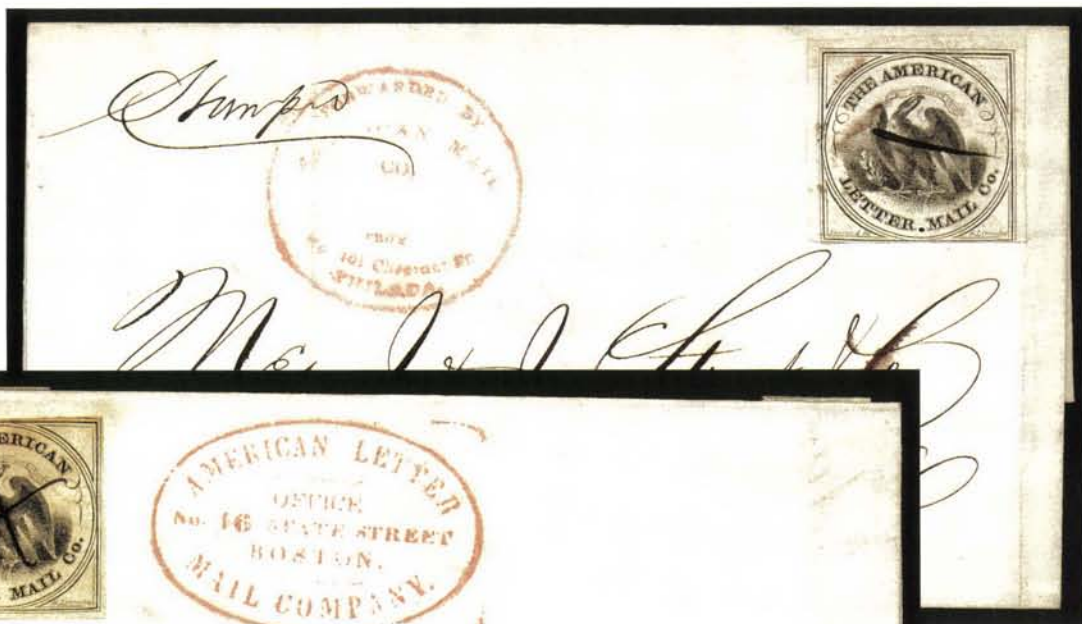 Stamps
FORWARDED BY
MAIL
CO.
FROM
No. 101 Chesnut St.
PHILADA.
THE AMERICAN
LETTER. MAIL Co.
AMERICAN LETTER
OFFICE
No. 16 STATE STREET
BOSTON.
MAIL COMPANY.
MAIL Co.